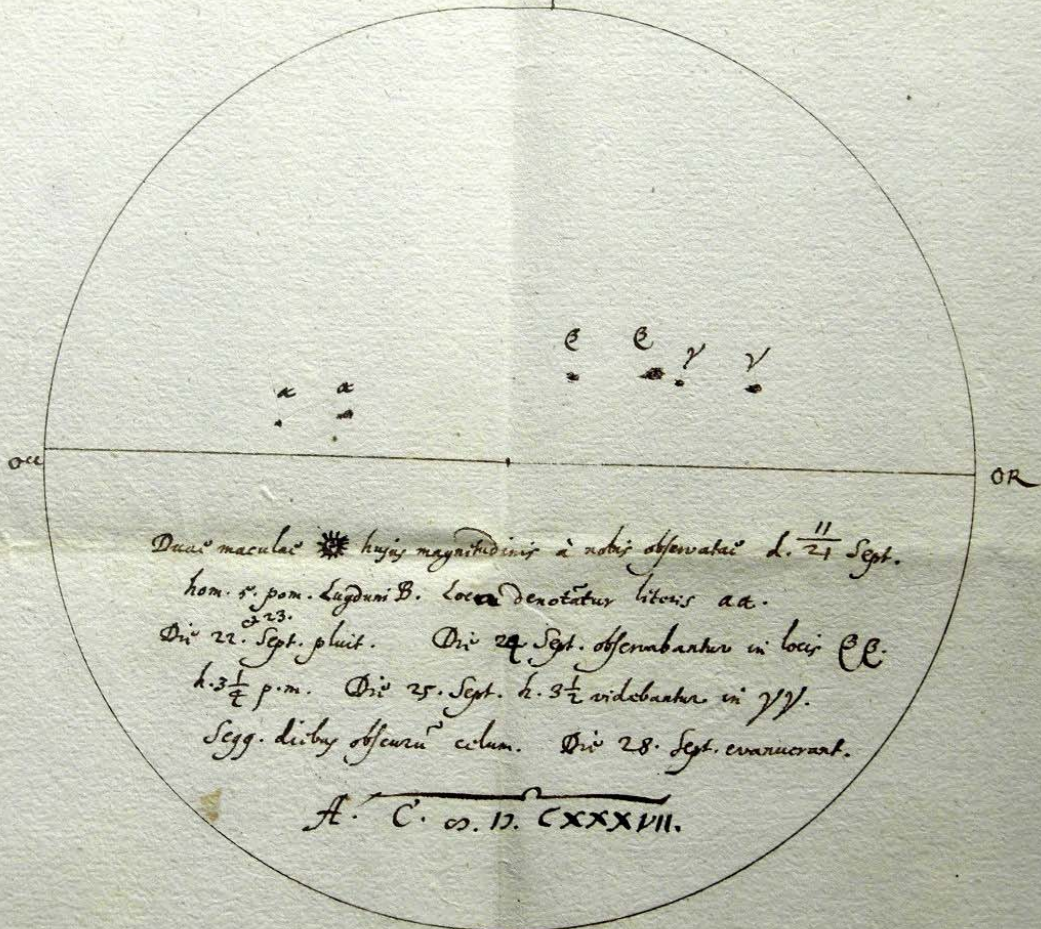 β β
γ γ
α α
occ
OR
Duae maculae ☀ hujus magnitudinis à nobis observatae d. 11/21 Sept.
hom. 5. pom. Lugduni B. Loca denotãtur literis αα.
& 23.
Die 22. Sept. pluit. Die 24 Sept. observabantur in locis ββ.
h. 3 1/4 p.m. Die 25. Sept. h. 3 1/2 videbantur in γγ.
Segg. diebus obscurũ celum. Die 28. Sept. evanuerant.
A. C. ∞. D. CXXXVII.